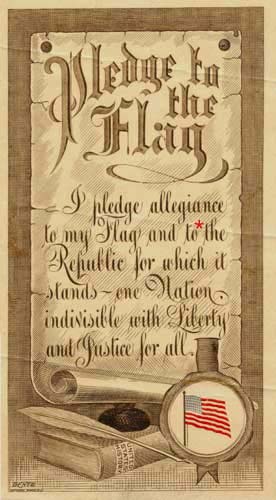 Pledge to
the
Flag
I pledge allegiance
to my Flag and to*the
Republic for which it
stands—one Nation
indivisible with Liberty
and Justice for all.
UNITED
STATES